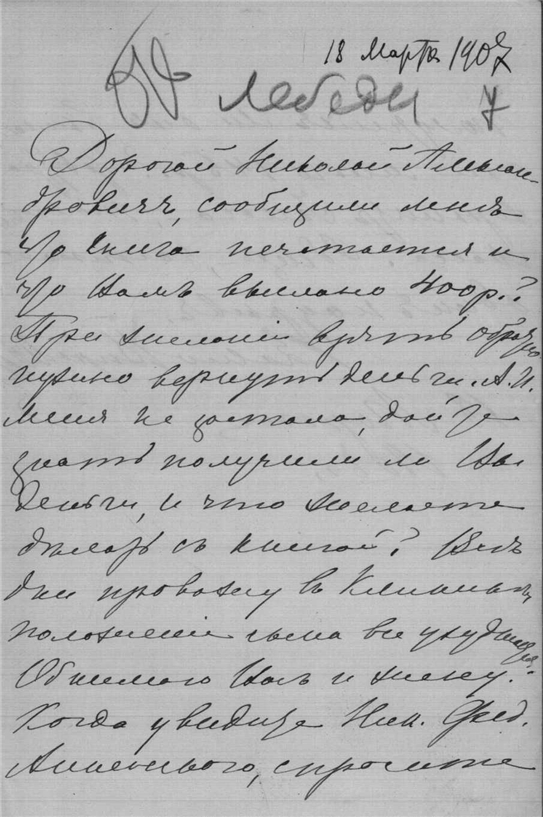 18 Марта 1907
Лебеди 7
Дорогой Николай Алексан-
дровичъ, сообщили мнѣ
что книга печатается и
что Вамъ выслано 400 р.?
При желаніи взять обратно
нужно вернуть деньги. А. И.
меня не застала, дайте
знать получили ли Вы
деньги, и что желаете
дѣлать съ книгой? Всѣ
дни провожу въ Клиникѣ,
положеніе сына все ухудшается.
Обнимаю Васъ и жену.
Когда увидите Ник. Фед.
Анненскаго, спросите